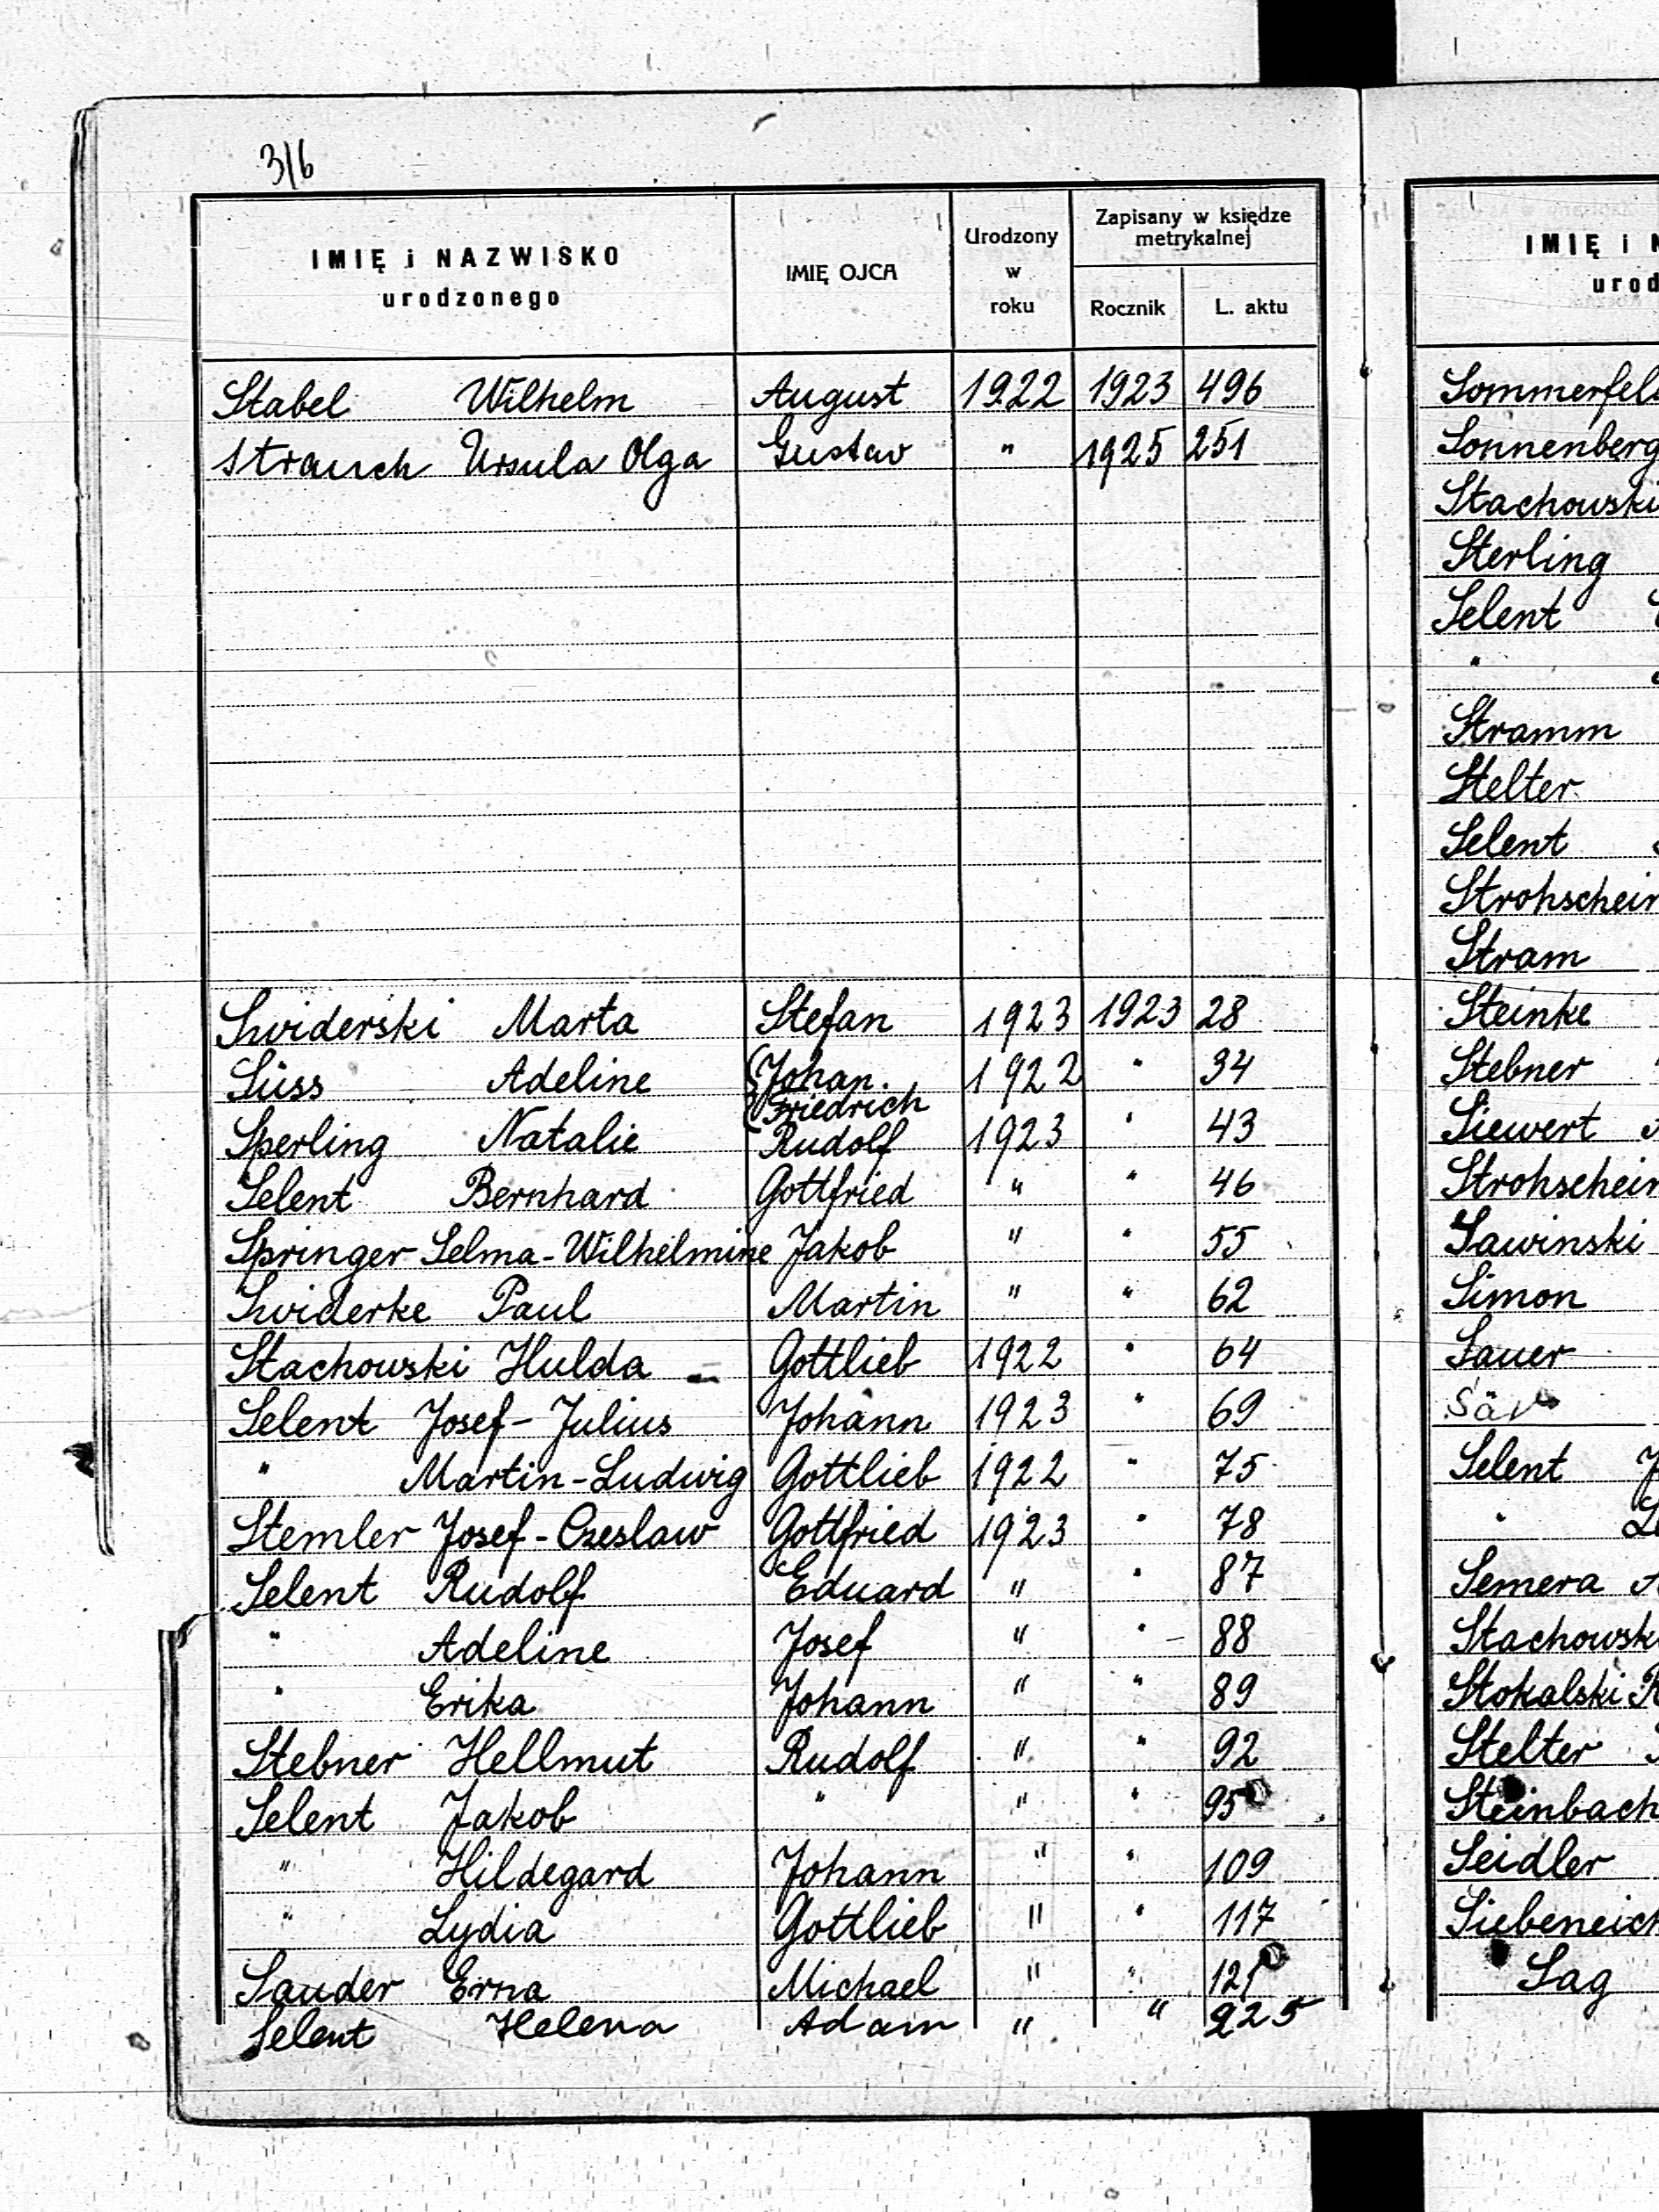 316
IMIĘ i NAZWISKO urodzonego IMIĘ OJCA Urodzony w roku Zapisany w księdze metrykalnej Rocznik L. aktu
Stabel Wilhelm August 1922 1923 496
Strauch Ursula Olga Gustav " 1925 251
Swiderski Marta Stefan 1923 1923 28
Süss Adeline Johan. Friedrich 1922 " 34
Sperling Natalie Rudolf 1923 " 43
Selent Bernhard Gottfried " " 46
Springer Selma-Wilhelmine Jakob " " 55
Swiderke Paul Martin " " 62
Stachowski Hulda Gottlieb 1922 " 64
Selent Josef-Julius Johann 1923 " 69
" Martin-Ludwig Gottlieb 1922 " 75
Stemler Josef-Czeslaw Gottfried 1923 " 78
Selent Rudolf Eduard " " 87
" Adeline Josef " " 88
" Erika Johann " " 89
Stebner Hellmut Rudolf " " 92
Selent Jakob " " " 95
" Hildegard Johann " " 109
" Lydia Gottlieb " " 117
Sauder Erna Michael " " 121
Selent Helena Adam " " 225
IMIĘ i N
urod
Sommerfeld
Sonnenberg
Stachowski
Sterling
Selent
"
Stramm
Stelter
Selent
Strohschein
Stram
Steinke
Stebner
Siewert
Strohschein
Sawinski
Simon
Sauer
Selent J
" Le
Semera A
Stachowski
Stokalski R
Stelter
Steinbach
Seidler
Siebeneich
Sag